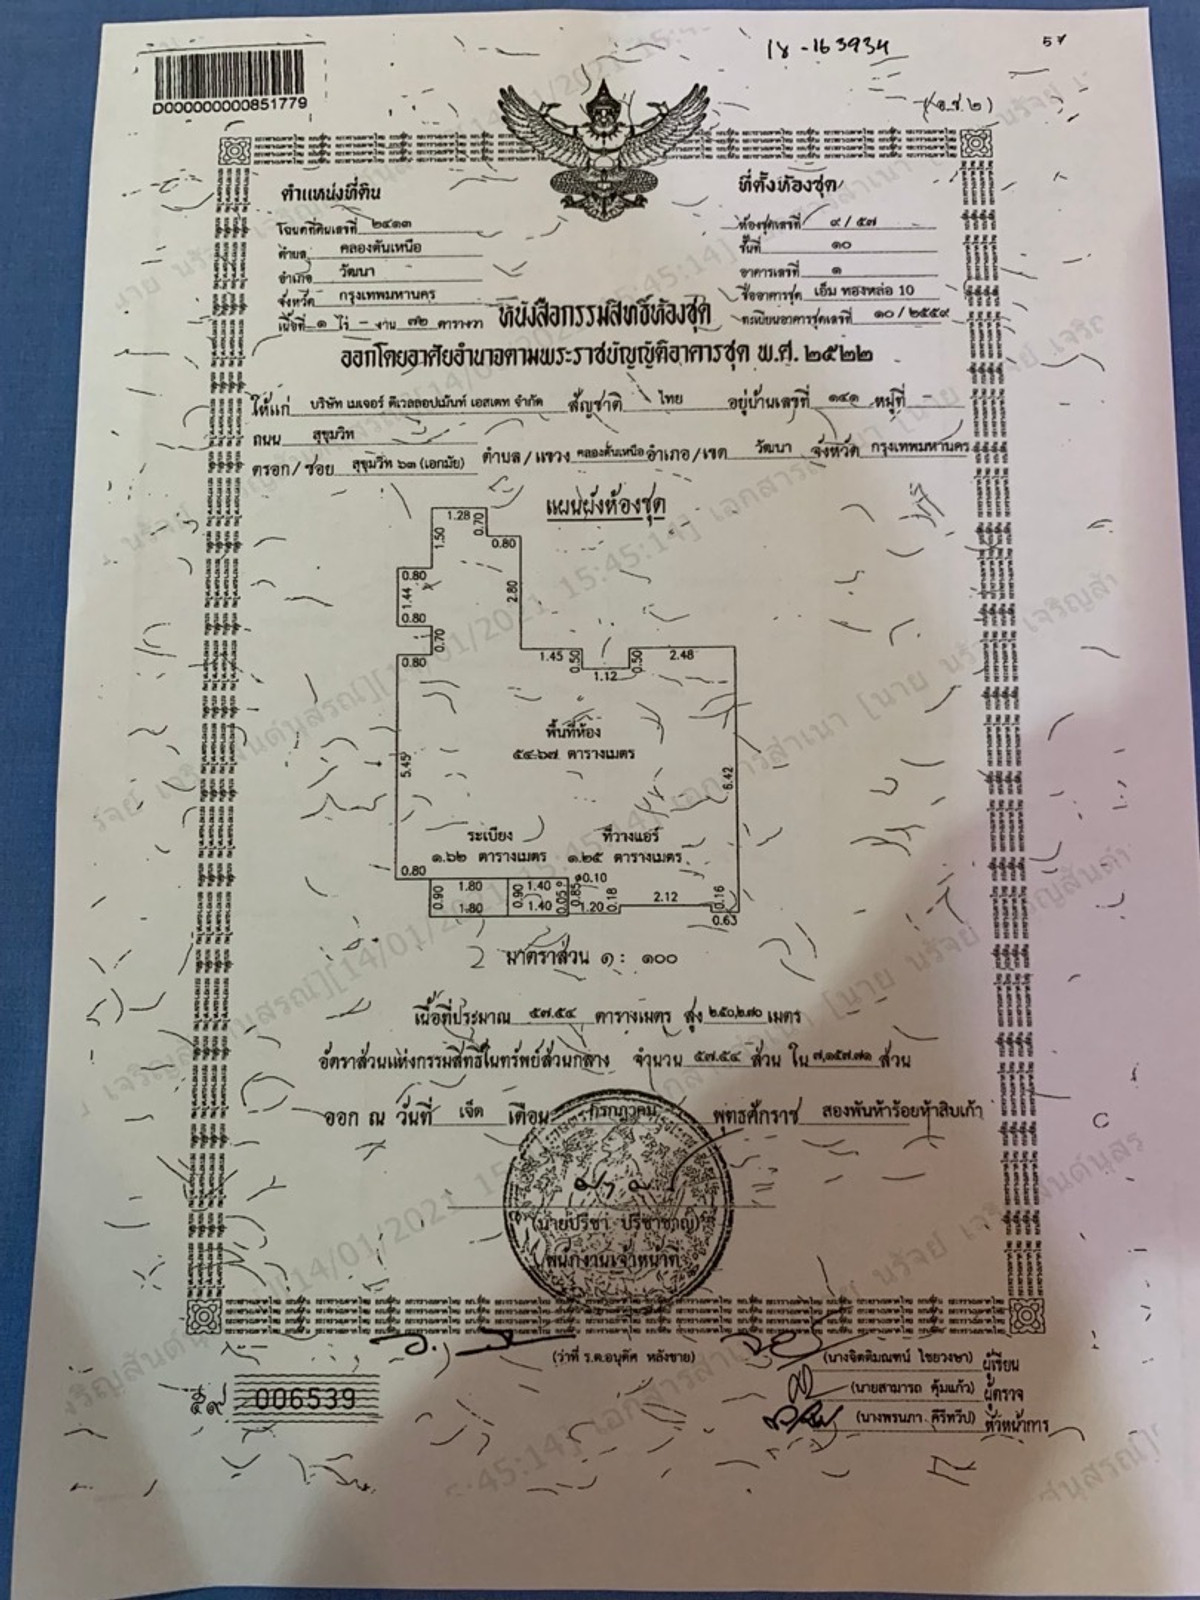 18-163934
57
D000000000851779
(อ.ช.๒)
ตำแหน่งที่ดิน
ที่ตั้งห้องชุด
โฉนดที่ดินเลขที่ ๒๔๑๓
ห้องชุดเลขที่ ๙/๕๗
ตำบล คลองตันเหนือ
ชั้นที่ ๑๐
อำเภอ วัฒนา
อาคารเลขที่ ๑
จังหวัด กรุงเทพมหานคร
ชื่ออาคารชุด เอ็ม ทองหล่อ 10
เนื้อที่ ๑ ไร่ - งาน ๗๒ ตารางวา
ทะเบียนอาคารชุดเลขที่ ๑๐/๒๕๕๙
หนังสือกรรมสิทธิ์ห้องชุด
ออกโดยอาศัยอำนาจตามพระราชบัญญัติอาคารชุด พ.ศ. ๒๕๒๒
ให้แก่ บริษัท เมเจอร์ ดีเวลลอปเม้นท์ เอสเตท จำกัด สัญชาติ ไทย อยู่บ้านเลขที่ ๑๔๑ หมู่ที่ -
ถนน สุขุมวิท
ตรอก/ซอย สุขุมวิท ๖๓ (เอกมัย) ตำบล/แขวง คลองตันเหนือ อำเภอ/เขต วัฒนา จังหวัด กรุงเทพมหานคร
แผนผังห้องชุด
1.28
0.70
1.50
0.80
0.80
1.44
2.80
0.80
0.70
0.80
1.45
0.50
1.12
0.50
2.48
พื้นที่ห้อง
๕๔.๖๗ ตารางเมตร
5.45
6.42
ระเบียง
ที่วางแอร์
๑.๖๒ ตารางเมตร
๑.๒๕ ตารางเมตร
0.80
0.10
0.90
1.80
0.90
1.40
0.05
0.85
0.18
2.12
0.16
1.80
1.40
1.20
0.63
มาตราส่วน ๑ : ๑๐๐
เนื้อที่ประมาณ ๕๗.๕๔ ตารางเมตร สูง ๒.๕๐,๒.๗๐ เมตร
อัตราส่วนแห่งกรรมสิทธิ์ในทรัพย์ส่วนกลาง จำนวน ๕๗.๕๔ ส่วน ใน ๗,๑๕๗.๗๑ ส่วน
ออก ณ วันที่ เจ็ด เดือน กรกฎาคม พุทธศักราช สองพันห้าร้อยห้าสิบเก้า
(นายปรีชา ปรีชาชาญ)
พนักงานเจ้าหน้าที่
(ว่าที่ ร.ต.อนุดิศ หลังชาย)
(นางจิตติมณฑน์ ไชยวงษา) ผู้เขียน
(นายสามารถ คุ้มแก้ว) ผู้ตรวจ
(นางพรนภา คีรีทวีป) หัวหน้าการ
006539